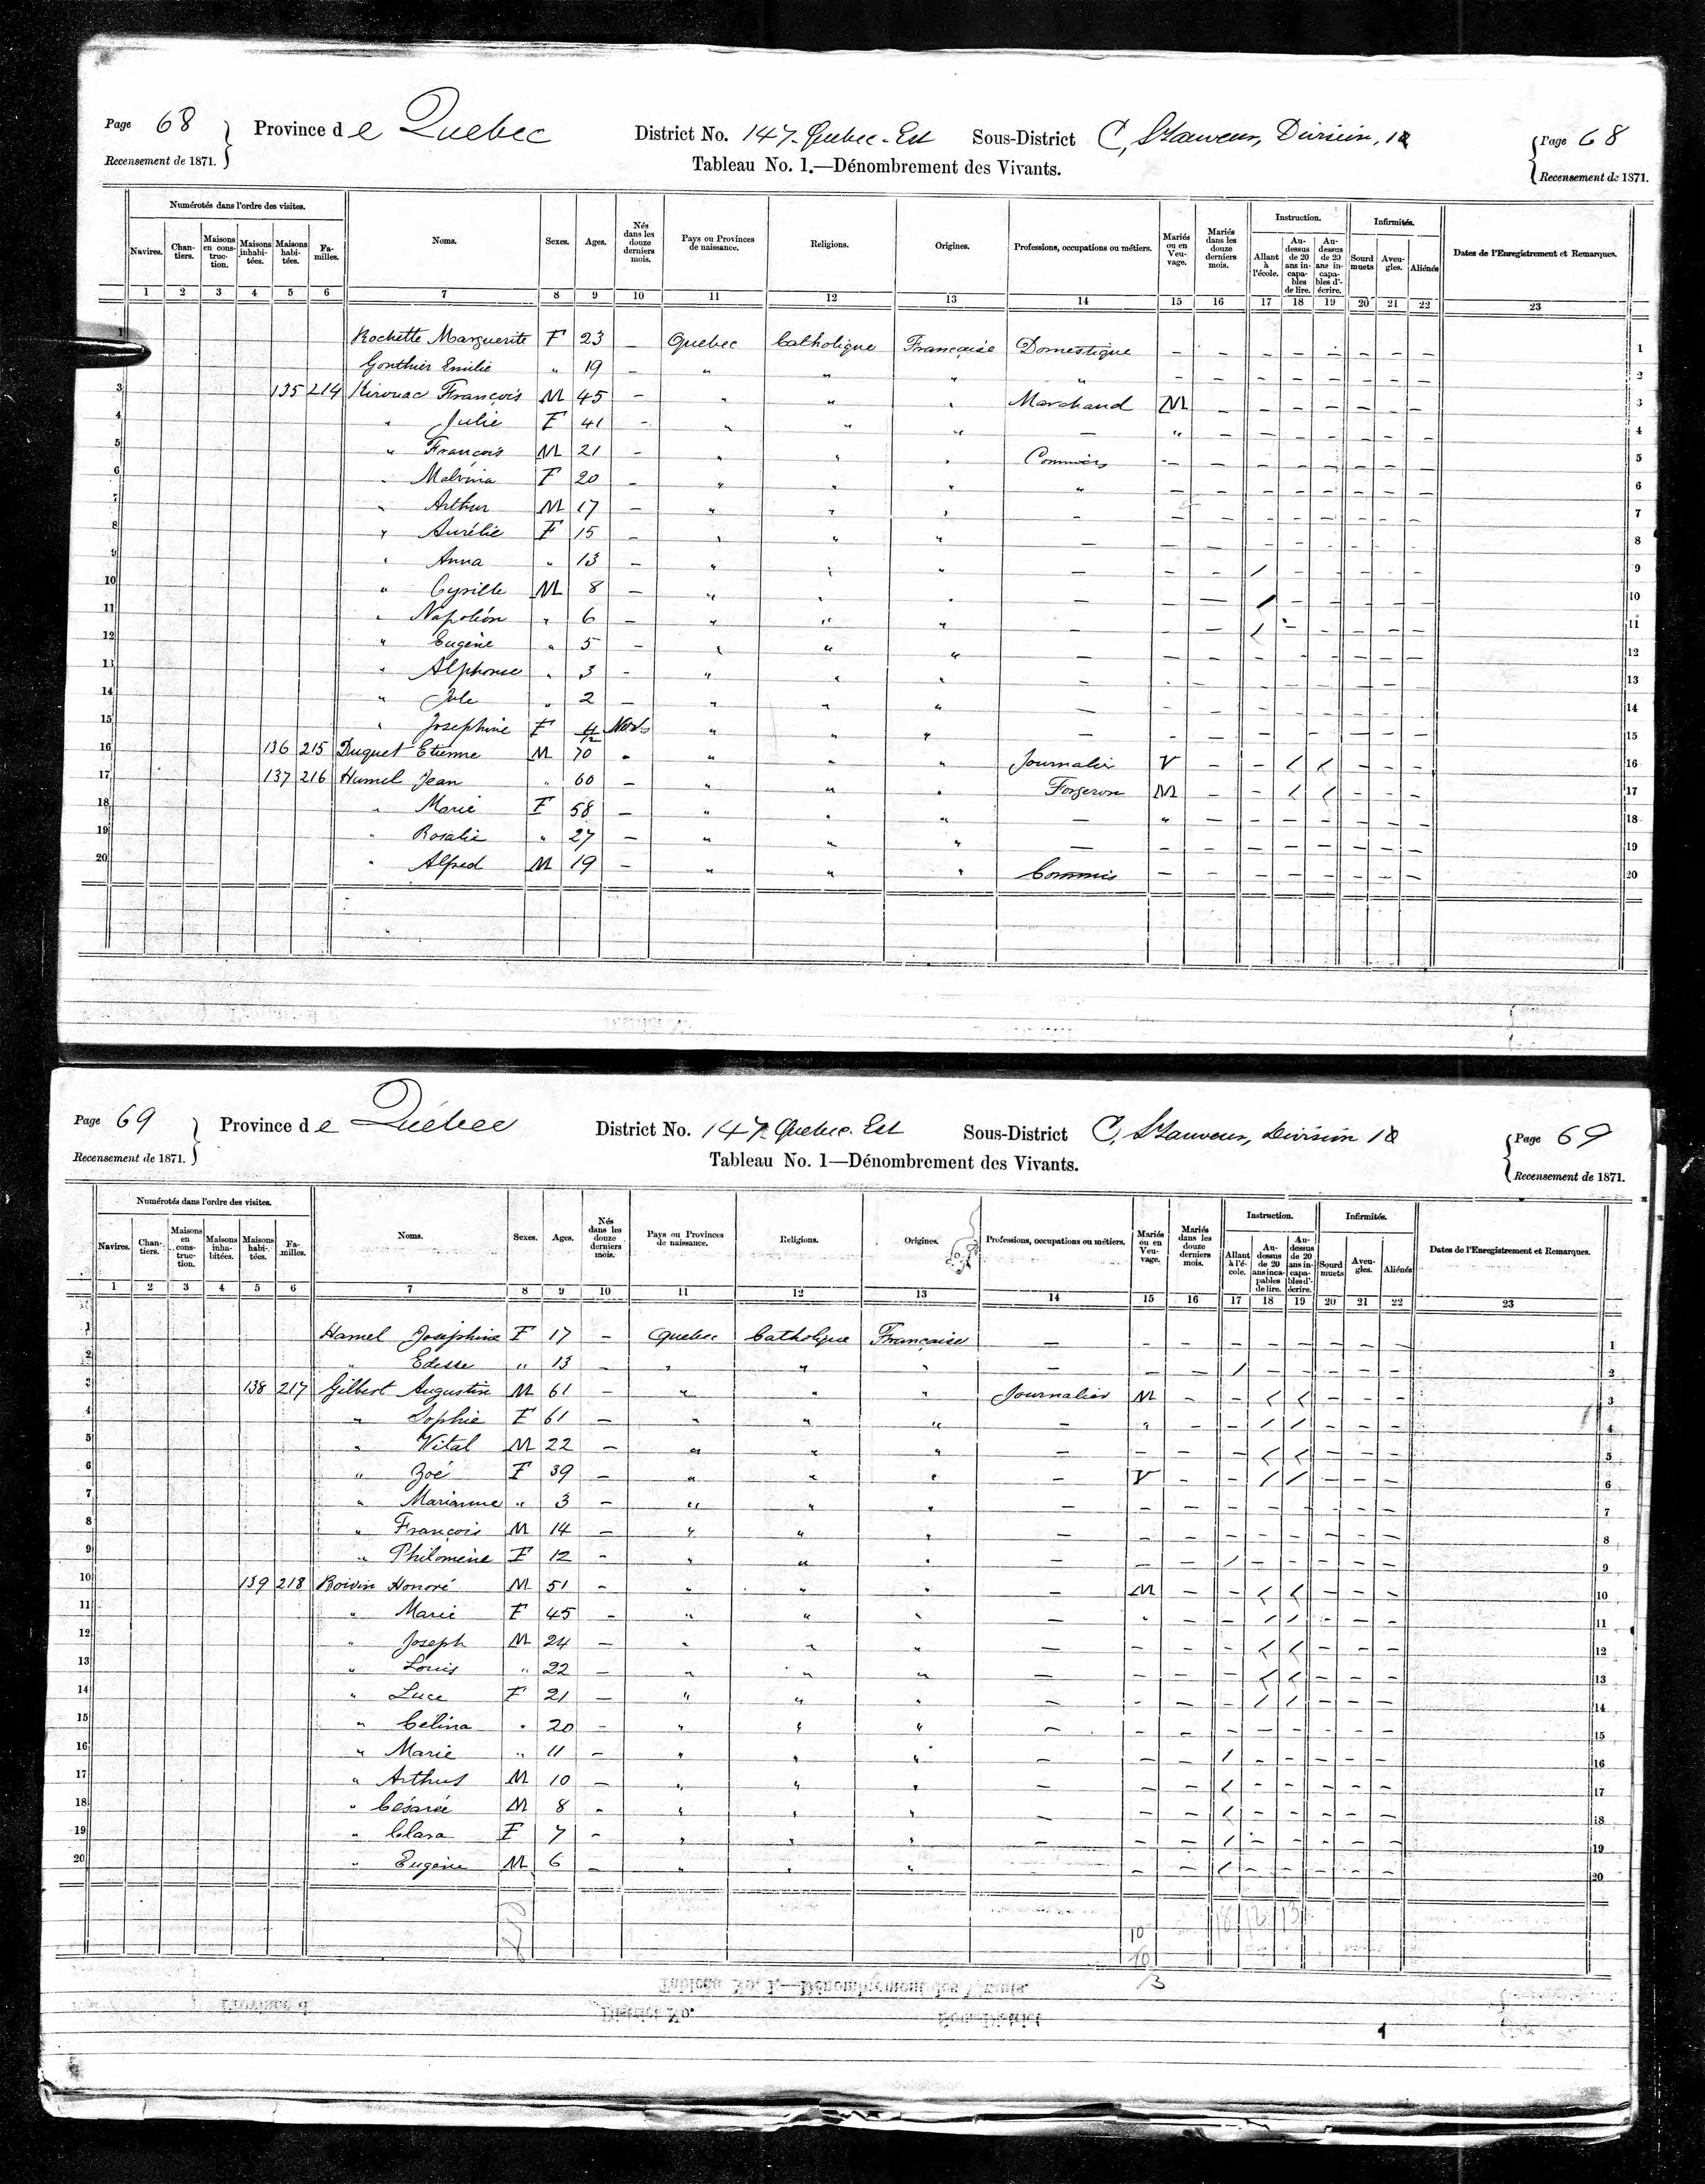 Page 68 Province de Quebec District No. 147. Quebec-Est Sous-District C, St Sauveur, Division, 1 Page 68
Recensement de 1871. Tableau No. 1.—Dénombrement des Vivants. Recensement de 1871.
Numérotés dans l'ordre des visites. Instruction. Infirmités.
Navires. Chantiers. Maisons en construction. Maisons inhabitées. Maisons habitées. Familles. Noms. Sexes. Ages. Nés dans les douze derniers mois. Pays ou Provinces de naissance. Religions. Origines. Professions, occupations ou métiers. Mariés ou en Veuvage. Mariés dans les douze derniers mois. Allant à l'école. Au-dessus de 20 ans incapables de lire. Au-dessus de 20 ans incapables d'écrire. Sourd muets Aveugles. Aliénés Dates de l'Enregistrement et Remarques.
1 2 3 4 5 6 7 8 9 10 11 12 13 14 15 16 17 18 19 20 21 22 23
1 Rochette Marguerite F 23 — Quebec Catholique Française Domestique — — — — — — — — 1
Gonthier Emilie " 19 — " " " " — — — — — — — — 2
3 135 214 Kirouac François M 45 — " " " Marchand M — — — — — — — 3
4 " Julie F 41 — " " " — " — — — — — — — 4
5 " François M 21 — " " " Commis — — — — — — — — 5
6 " Malvina F 20 — " " " " — — — — — — — — 6
7 " Arthur M 17 — " " " — — — — — — — — — 7
8 " Aurélie F 15 — " " " — — — — — — — — — 8
9 " Anna " 13 — " " " — — — / — — — — — 9
10 " Cyrille M 8 — " " " — — — / — — — — — 10
11 " Napoléon " 6 — " " " — — — / — — — — — 11
12 " Eugène " 5 — " " " — — — — — — — — — 12
13 " Alphonse " 3 — " " " — — — — — — — — — 13
14 " Jule " 2 — " " " — — — — — — — — — 14
15 " Josephine F " " " — — — — — — — — 15
16 136 215 Duquet Etienne M 70 — " " " Journalier V — — / / — — — 16
17 137 216 Hamel Jean " 60 — " " " Forgeron M — — / / — — — 17
18 " Marie F 58 — " " " — " — — — — — — — 18
19 " Rosalie " 27 — " " " — — — — — — — — — 19
20 " Alfred M 19 — " " " Commis — — — — — — — — 20
Page 69 Province de Québec District No. 147 Quebec-Est Sous-District C, St Sauveur, Division 1 Page 69
Recensement de 1871. Tableau No. 1—Dénombrement des Vivants. Recensement de 1871.
Numérotés dans l'ordre des visites. Instruction. Infirmités.
Navires. Chantiers. Maisons en construction. Maisons inhabitées. Maisons habitées. Familles. Noms. Sexes. Ages. Nés dans les douze derniers mois. Pays ou Provinces de naissance. Religions. Origines. Professions, occupations ou métiers. Mariés ou en Veuvage. Mariés dans les douze derniers mois. Allant à l'école. Au-dessus de 20 ans incapables de lire. Au-dessus de 20 ans incapables d'écrire. Sourd muets Aveugles. Aliénés Dates de l'Enregistrement et Remarques.
1 2 3 4 5 6 7 8 9 10 11 12 13 14 15 16 17 18 19 20 21 22 23
1 Hamel Josephine F 17 — Quebec Catholique Française — — — — — — — — — 1
2 " Edesse " 13 — " " " — — — / — — — — — 2
3 138 217 Gilbert Augustin M 61 — " " " Journalier M — — / / — — — 3
4 " Sophie F 61 — " " " — " — — / / — — — 4
5 " Vital M 22 — " " " — — — — / / — — — 5
6 " Zoé F 39 — " " " — V — — / / — — — 6
7 " Marianne " 3 — " " " — — — — — — — — — 7
8 " François M 14 — " " " — — — — — — — — — 8
9 " Philomène F 12 — " " " — — — / — — — — — 9
10 139 218 Boivin Honoré M 51 — " " " M — — / / — — — 10
11 " Marie F 45 — " " " — " — — / / — — — 11
12 " Joseph M 24 — " " " — — — — / / — — — 12
13 " Louis " 22 — " " " — — — — / / — — — 13
14 " Luce F 21 — " " " — — — — / / — — — 14
15 " Celina " 20 — " " " — — — — — — — — — 15
16 " Marie " 11 — " " " — — — / — — — — — 16
17 " Arthur M 10 — " " " — — — / — — — — — 17
18 " Césarée M 8 — " " " — — — / — — — — — 18
19 " Clara F 7 — " " " — — — / — — — — — 19
20 " Eugène M 6 — " " " — — / — — — — — 20
10
10
3